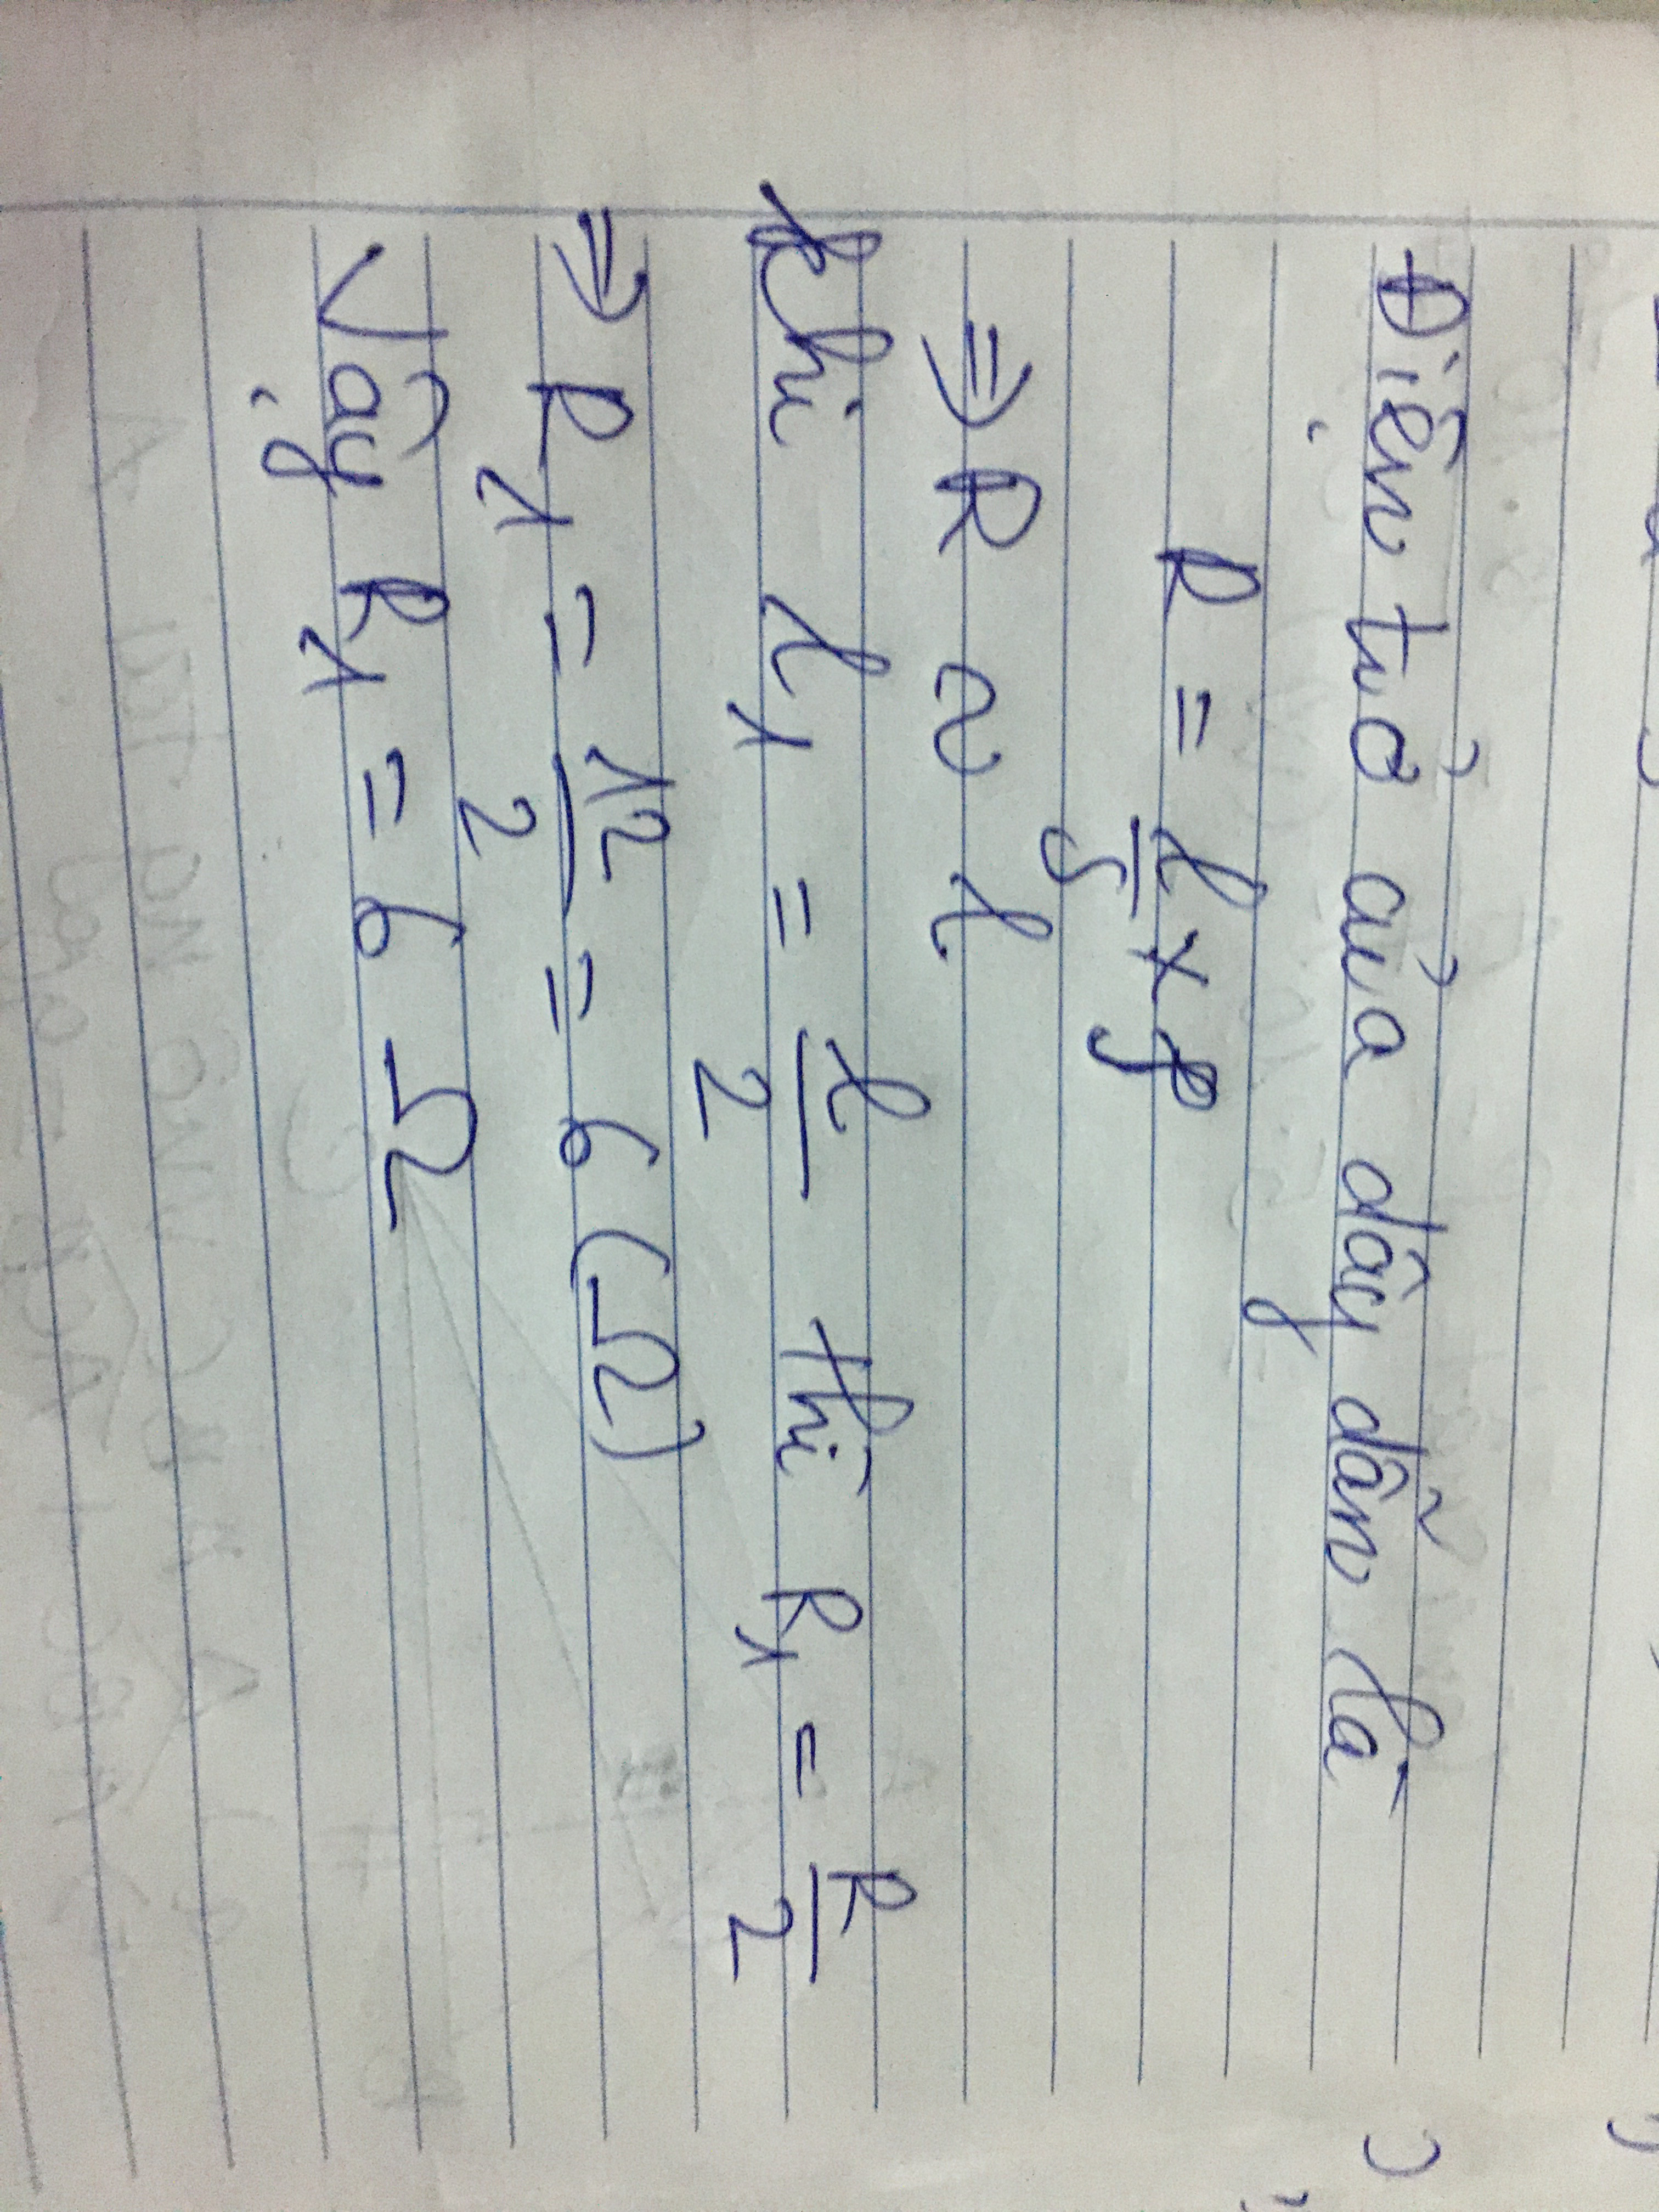 Điện trở của dây dẫn là
R = l/S × ρ
⇒ R ~ l
Khi l₁ = l/2 thì R₁ = R/2
⇒ R₁ = 12/2 = 6 (Ω)
Vậy R₁ = 6 Ω